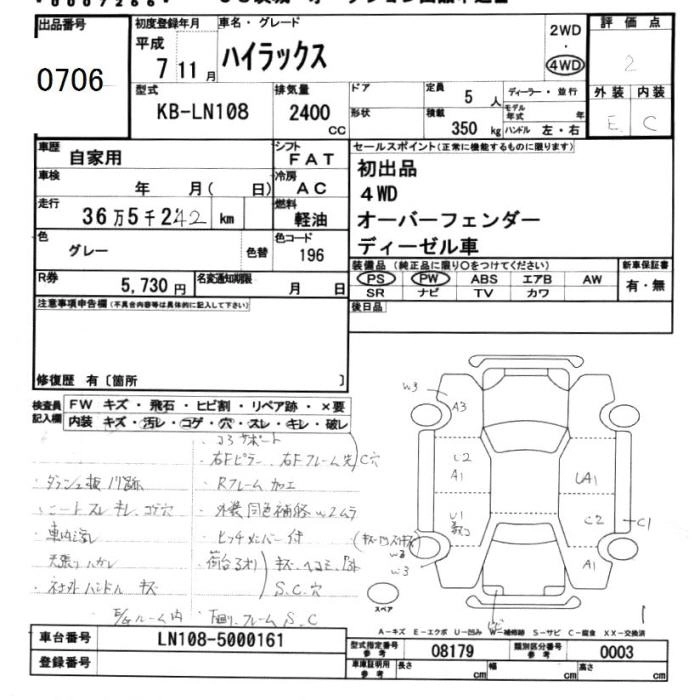 出品番号
0706
初度登録年月
平成
7 11 月
車名・グレード
ハイラックス
2WD
・
4WD
評価点
2
外装 内装
E C
型式
KB-LN108
排気量
2400
CC
ドア
形状
定員
5 人
積載
350 kg
ディーラー・並行
モデル年式 年
ハンドル 左・右
車歴
自家用
シフト
FAT
車検
年 月( 日)
冷房
AC
走行
36万5千242 km
燃料
軽油
色
グレー
色替
色コード
196
R券
5,730 円
名変通知期限
月 日
セールスポイント(正常に機能するものに限ります)
初出品
4WD
オーバーフェンダー
ディーゼル車
装備品 (純正品に限り○をつけてください)
PS PW ABS エアB AW
SR ナビ TV カワ
新車保証書
有・無
後日品
注意事項申告欄(不具合内容等は具体的に記入して下さい)
修復歴 有〔箇所 〕
検査員
記入欄
FW キズ・飛石・ヒビ割・リペア跡・×要
内装 キズ・汚レ・コゲ・穴・スレ・キレ・破レ
・コアサポート
・右Fピラー、右Fフレーム先 C穴
・ダッシュ板
・Rフレーム加工
・シートスレ キレ コゲ穴
・外装同色補修W2ムラ
・車内汚レ
・ヒッチメンバー付
・天張リハガレ
・荷台
キズ・ヘコミ
S.C.穴
ハンドル キズ
ルーム内
下廻リ、フレームS.C
W3
A3
U2
A1
U1
UA1
C2
C1
A1
W2
W3
スペア
A−キズ E−エクボ U−凹み W−補修跡 S−サビ C−腐食 XX−交換済
車台番号
LN108-5000161
登録番号
型式指定番号
参考
08179
類別区分番号
参考
0003
車庫証明用
参考
長さ cm
幅 cm
高さ cm